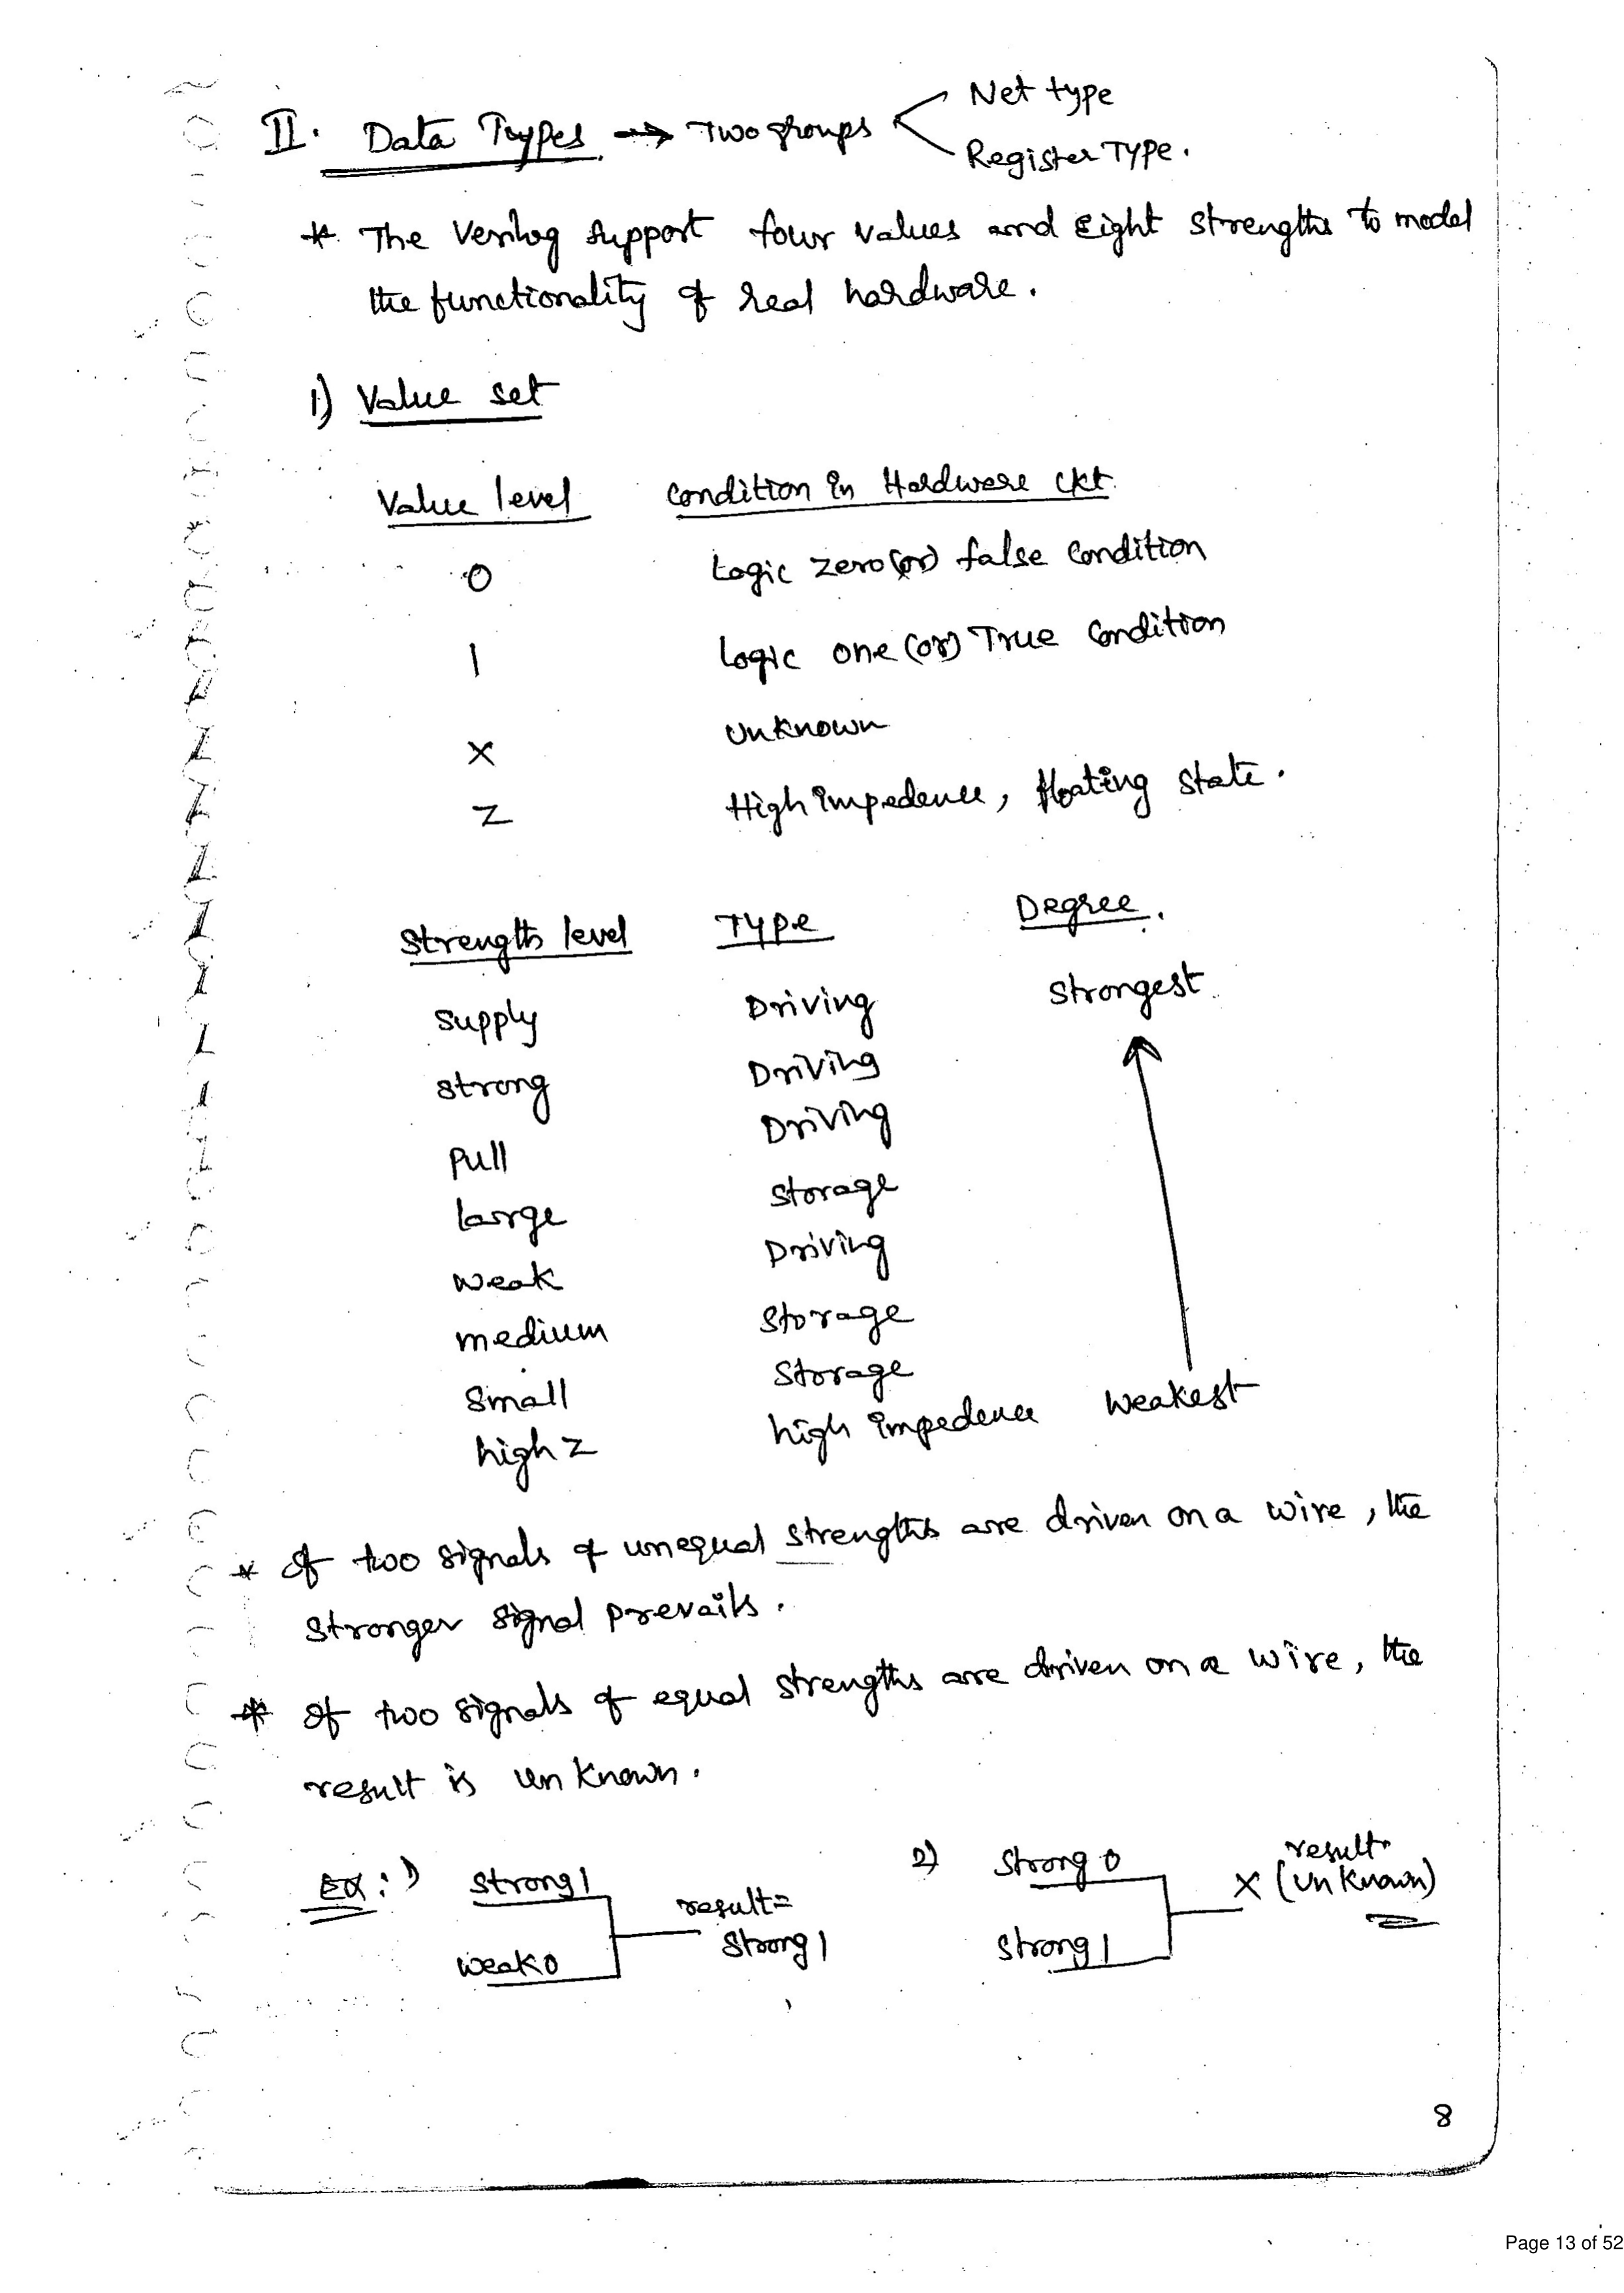 II. Data Types → Two groups
Net type
Register Type.
* The Verilog support four values and Eight strengths to model
the functionality of real hardware.
1) Value set
Value level Condition in Hardware ckt
0 Logic zero (or) false Condition
1 Logic one (or) True Condition
X Unknown
Z High impedence, floating state.
Strength level Type Degree.
Supply Driving Strongest
strong Driving
Pull Driving
large Storage
weak Driving
medium Storage
Small Storage
high z high impedence Weakest
* If two signals of unequal strengths are driven on a wire, the
stronger signal prevails.
* If two signals of equal strengths are driven on a wire, the
result is unknown.
Ex: 1) Strong 1
weak 0
result=
Strong 1
2) Strong 0
Strong 1
result
X (unknown)
8
Page 13 of 52